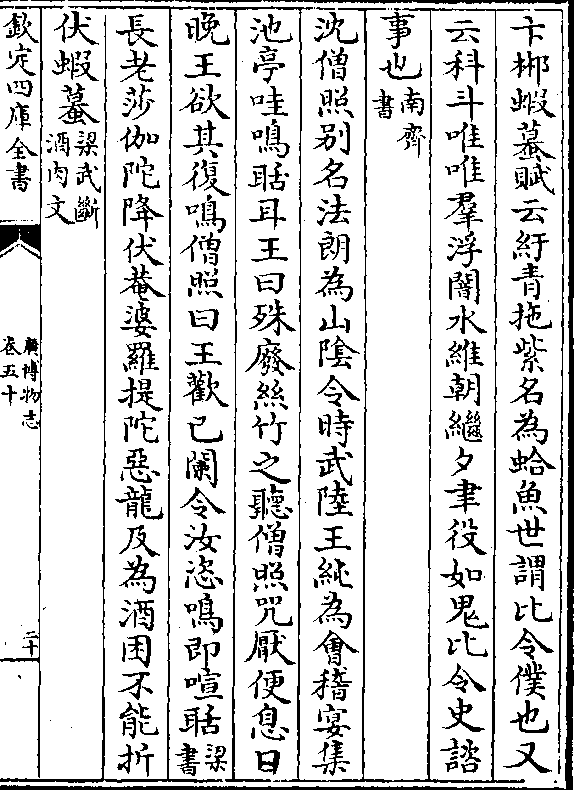 卞郴蝦蟇賦云紆青拖紫名為蛤魚世謂比令僕也又
云科斗唯唯羣浮闇水維朝繼夕聿役如鬼比令史諮
事也南齊書
沈僧照别名法朗為山陰令時武陸王紀為㑹稽宴集
池亭哇鳴聒耳王曰殊廢絲竹之聽僧照咒厭便息日
晚王欲其復鳴僧照曰王歡已闌令汝恣鳴即喧聒梁書
長老莎伽陀降伏菴婆羅提陀惡龍及為酒困不能折
伏蝦蟇梁武斷酒肉文
欽定四庫全書
廣博物志
卷五十
二十